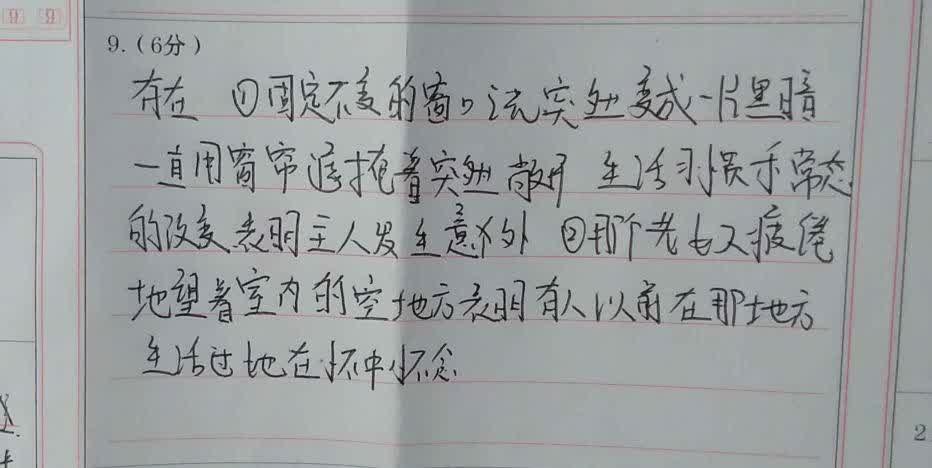 9.(6分)
存在 ①固定不变的窗口说突然变成一片黑暗
一直用窗帘遮掩着突然敞开 生活习惯乎常态
的改变表明主人发生意外 ②那个老女又疲倦
地望着室内的空地方表明有人以前在那地方
生活过她在怀中怀念
2